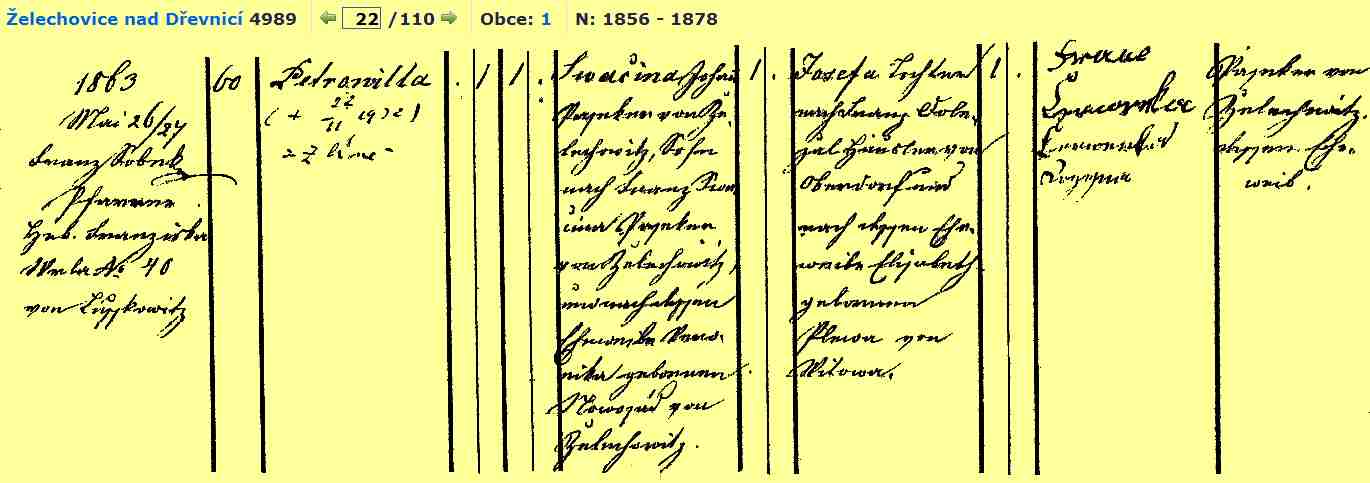 Želechovice nad Dřevnicí 4989 22 /110 Obce: 1 N: 1856 - 1878
1863
Mai 26/27
Franz Sobek
Pfarrer
Heb. Franziska
Wrla № 40
von Lippkowitz
60
Petronilla
. 1 1 .
Swačina Johan
von Že-
lechowitz, Sohn
nach Franz Swa-
čina
von Želechowitz,
und nach dessen
Eheweibe Vero-
nika geborenen
Nowosád von
Želechowitz.
1 .
Josefa Tochter
nach Franz Dole-
žal Häusler von
Oberdorf und
nach dessen Ehe-
weibe Elisabeth
geborenen
Plewa von
Witowa.
1 .
Franz
Čerwenka
von
Želechowitz.
dessen Ehe-
weib.